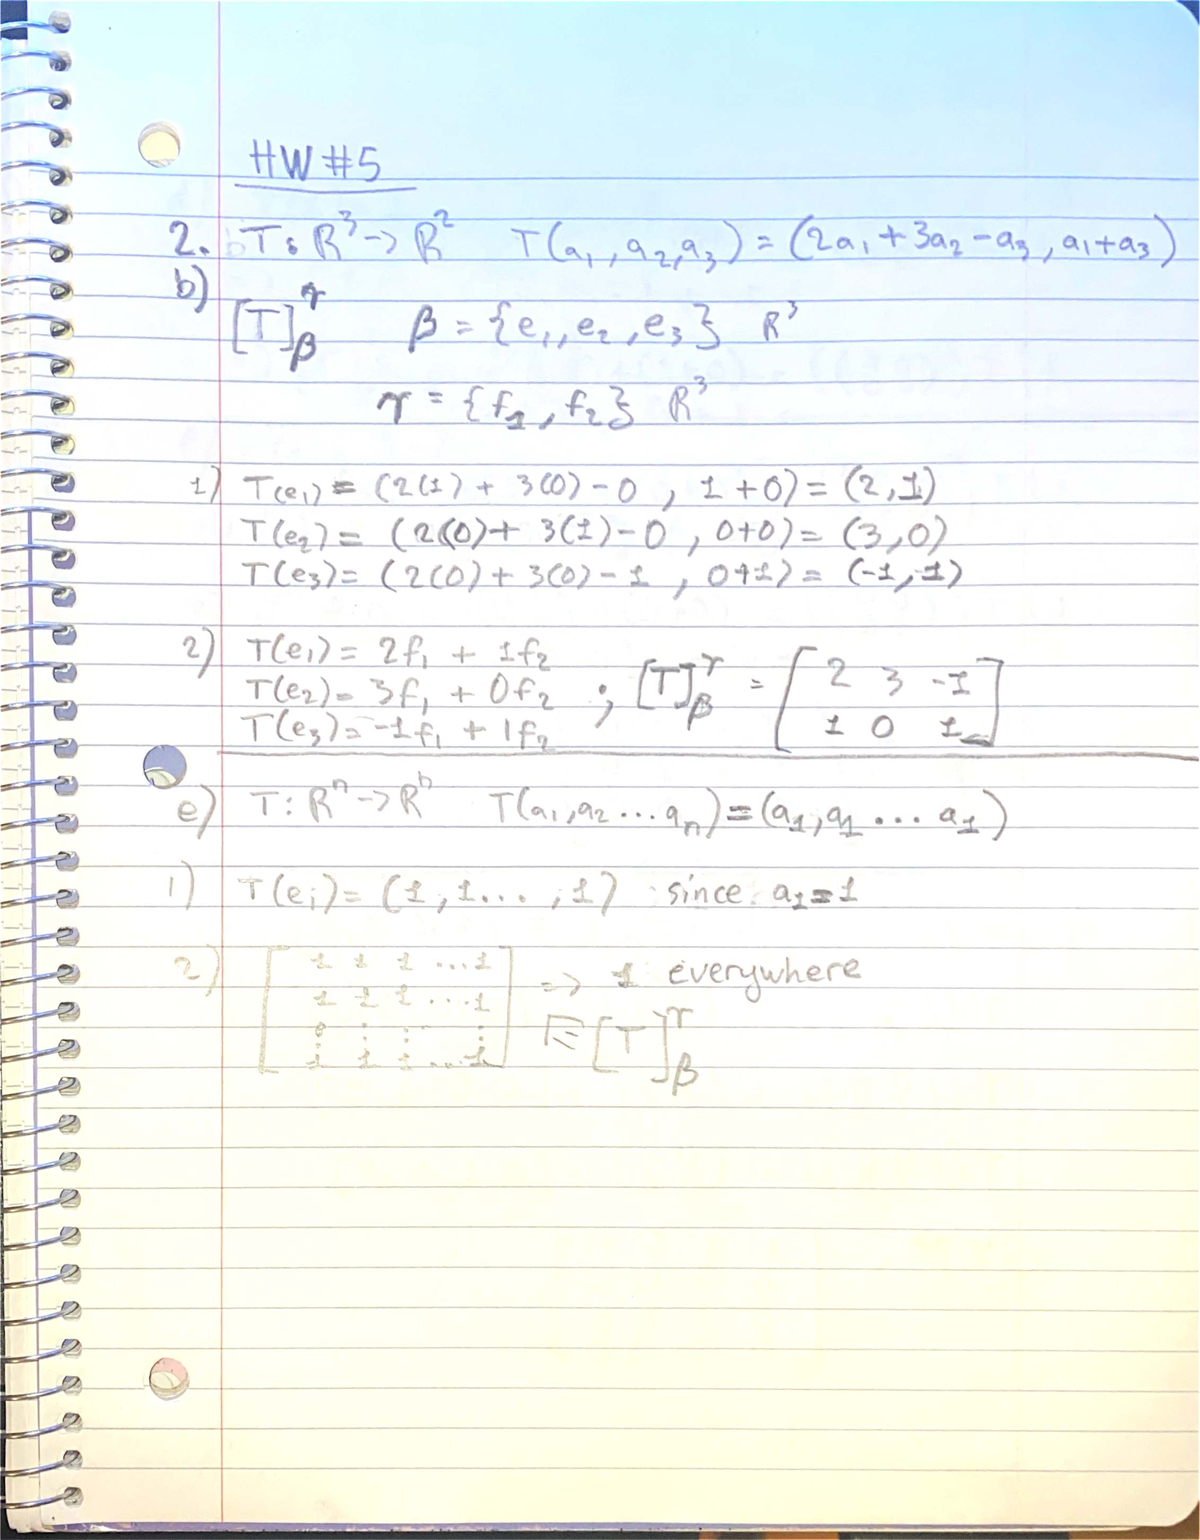 HW #5
2. T: R³ -> R² T(a₁, a₂, a₃) = (2a₁ + 3a₂ - a₃, a₁ + a₃)
b)
[T]ᵧᵦ β = {e₁, e₂, e₃} R³
γ = {f₁, f₂} R³
1) T(e₁) = (2(1) + 3(0) - 0, 1 + 0) = (2, 1)
T(e₂) = (2(0) + 3(1) - 0, 0+0) = (3, 0)
T(e₃) = (2(0) + 3(0) - 1, 0+1) = (-1, 1)
2) T(e₁) = 2f₁ + 1f₂
T(e₂) = 3f₁ + 0f₂ ; [T]ᵧᵦ = [2 3 -1
T(e₃) = -1f₁ + 1f₂ 1 0 1]
e) T: Rⁿ -> Rⁿ T(a₁, a₂ ... aₙ) = (a₁, a₁ ... a₁)
1) T(eᵢ) = (1, 1..., 1) since a₁ = 1
2) [1 1 1 ...1 => 1 everywhere
1 1 1 ...1
: : : : [T]ᵧᵦ
1 1 1 ...1]